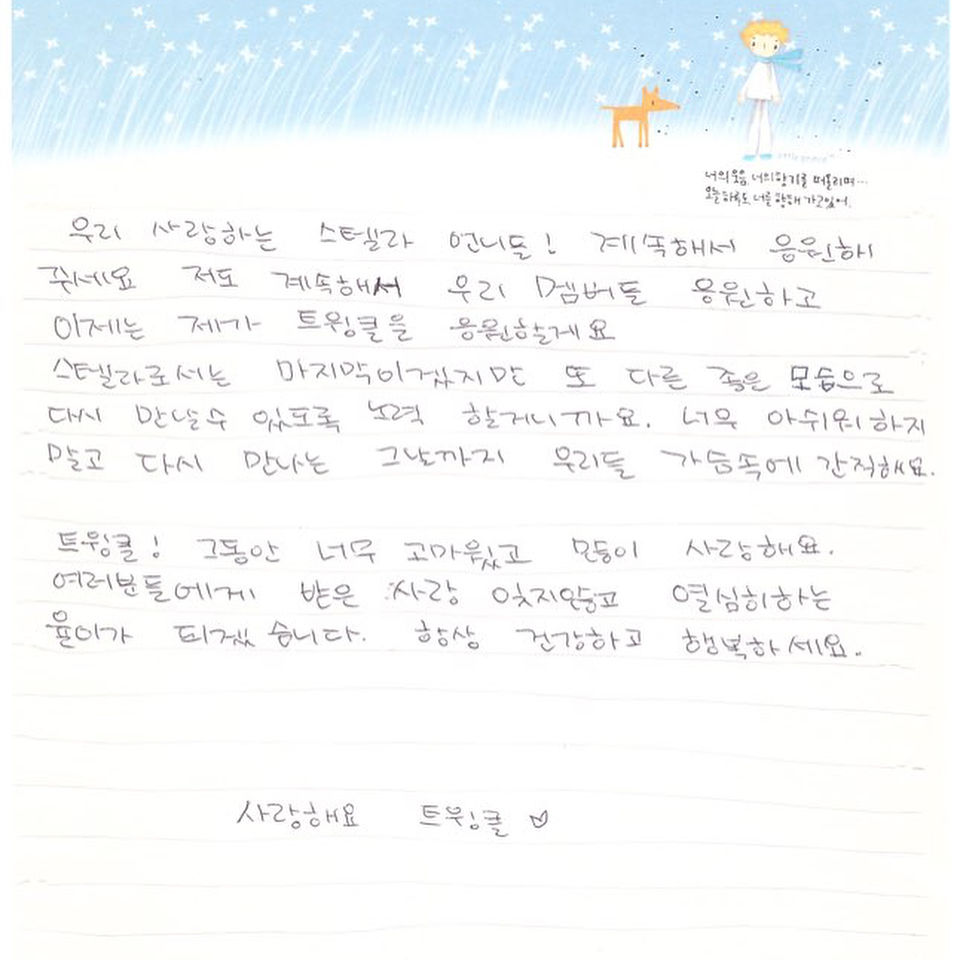 너의 웃음, 너의 향기를 떠올리며…
오늘 하루도 너를 향해 가고있어.
우리 사랑하는 스텔라 언니들! 계속해서 응원해
줘세요 저도 계속해서 우리 멤버들 응원하고
이제는 제가 트윙클을 응원할게요
스텔라로서는 마지막이겠지만 또 다른 좋은 모습으로
다시 만날수 있도록 노력 할거니까요. 너무 아쉬워하지
말고 다시 만나는 그날까지 우리들 가슴속에 간직해요.
트윙클! 그동안 너무 고마웠고 많이 사랑해요.
여러분들에게 받은 사랑 잊지않고 열심히하는
율이가 되겠습니다. 항상 건강하고 행복하세요.
사랑해요 트윙클 ♡